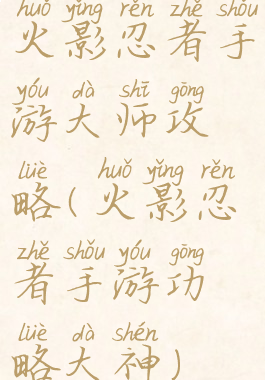 huǒ yǐng rěn zhě shǒu
火影忍者手
yóu dà shī gōng
游大师攻
lüè huǒ yǐng rěn
略(火影忍
zhě shǒu yóu gōng
者手游功
lüè dà shén
略大神)